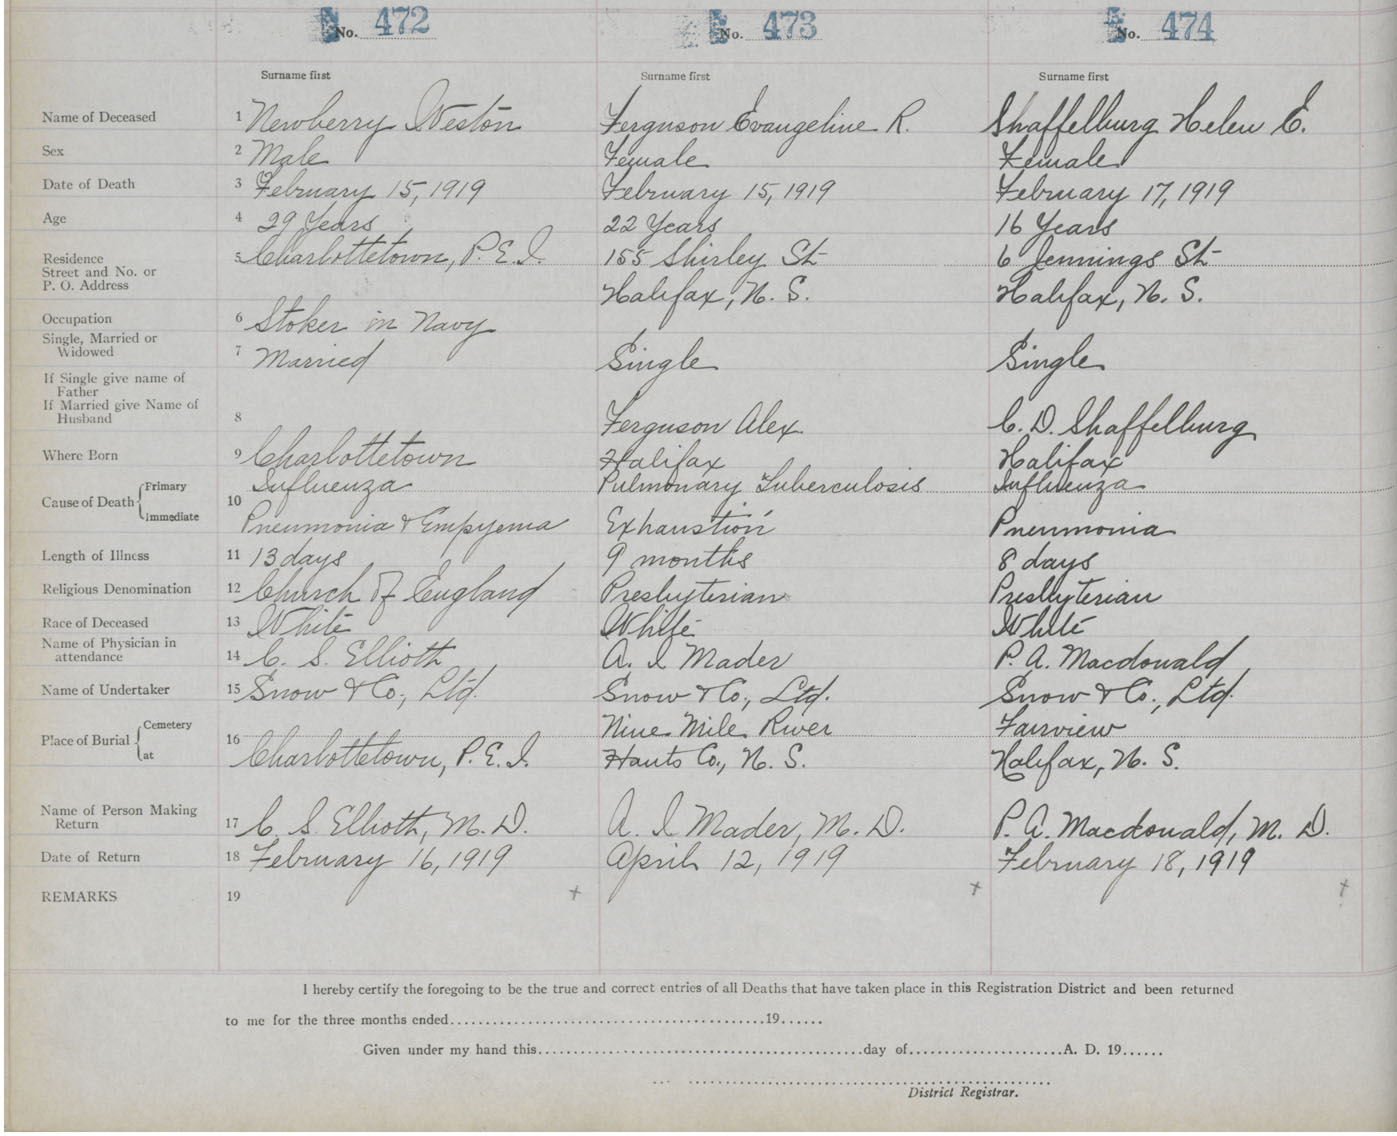 No. 472 No. 473 No. 474
Surname first Surname first Surname first
Name of Deceased 1 Newberry Weston Ferguson Evangeline R. Shaffelburg Helen E.
Sex 2 Male Female Female
Date of Death 3 February 15, 1919 February 15, 1919 February 17, 1919
Age 4 29 Years 22 Years 16 Years
Residence 5 Charlottetown, P.E.I. 155 Shirley St 6 Jennings St
Street and No. or
P. O. Address Halifax, N. S. Halifax, N. S.
Occupation 6 Stoker in Navy
Single, Married or
Widowed 7 Married Single Single
If Single give name of
Father
If Married give Name of
Husband 8 Ferguson Alex. C. D. Shaffelburg
Where Born 9 Charlottetown Halifax Halifax
Cause of Death Primary 10 Influenza Pulmonary Tuberculosis Influenza
Immediate Pneumonia & Empyema Exhaustion Pneumonia
Length of Illness 11 13 days 9 months 8 days
Religious Denomination 12 Church of England Presbyterian Presbyterian
Race of Deceased 13 White White White
Name of Physician in
attendance 14 C. S. Elliott A. I Mader P. A. Macdonald
Name of Undertaker 15 Snow & Co., Ltd. Snow & Co., Ltd. Snow & Co., Ltd.
Place of Burial Cemetery 16 Nine Mile River Fairview
at Charlottetown, P.E.I. Hants Co., N. S. Halifax, N. S.
Name of Person Making
Return 17 C. S. Elliott, M.D. A. I Mader, M.D. P. A. Macdonald, M. D.
Date of Return 18 February 16, 1919 April 12, 1919 February 18, 1919
REMARKS 19
I hereby certify the foregoing to be the true and correct entries of all Deaths that have taken place in this Registration District and been returned
to me for the three months ended.............................................19......
Given under my hand this..............................................day of......................A. D. 19......
District Registrar.